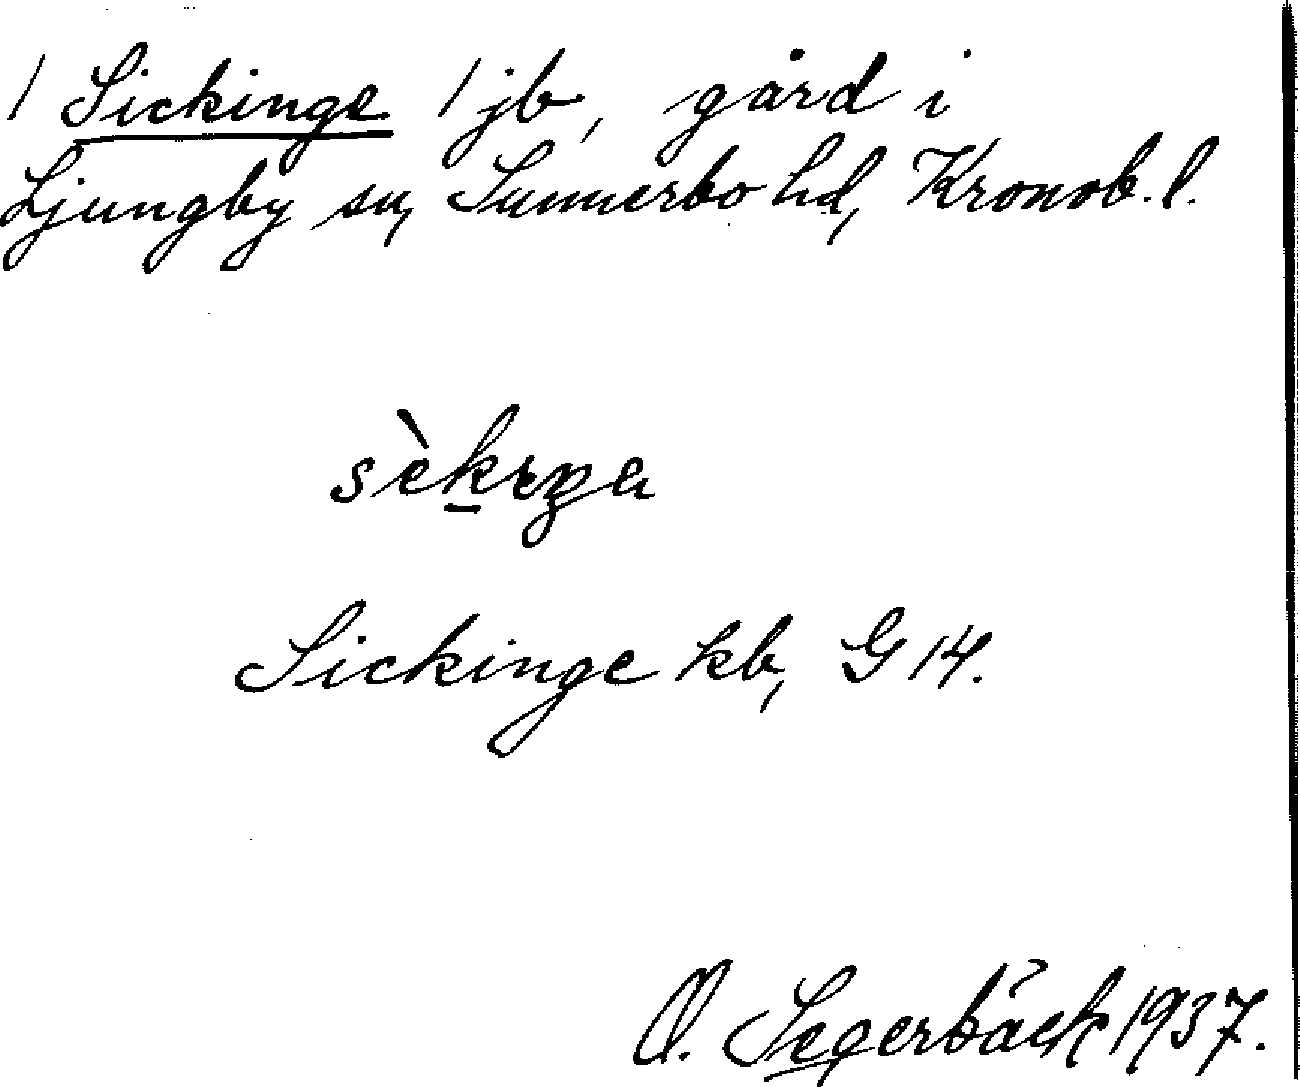 / Sickinge / jb, gård i
Ljungby sn, Sunnerbo hd, Kronob. l.
Sickinge kb, G 14.
O. Segerbäck 1937.